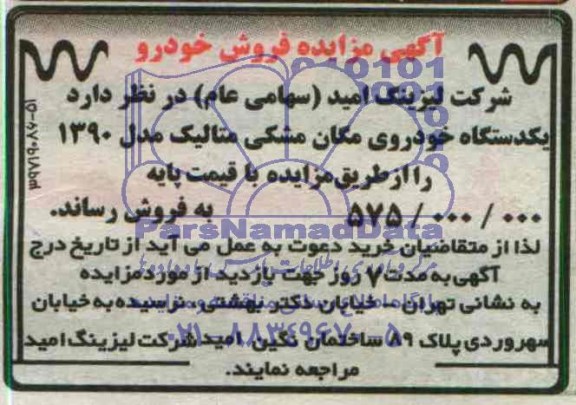 آگهی مزایده فروش خودرو
شرکت لیزینگ امید (سهامی عام) در نظر دارد
یکدستگاه خودروی مگان مشکی متالیک مدل ۱۳۹۰
را از طریق مزایده با قیمت پایه
۵۷۵/۰۰۰/۰۰۰ به فروش رساند.
لذا از متقاضیان خرید دعوت به عمل می آید از تاریخ درج
آگهی به مدت ۷ روز جهت بازدید از مورد مزایده
به نشانی تهران - خیابان دکتر بهشتی - نرسیده به خیابان
سهروردی پلاک ۸۹ ساختمان نگین امید شرکت لیزینگ امید
مراجعه نمایند.
ParsNamadData
۰۲۱-۸۸۳۴۹۶۷۰-۵